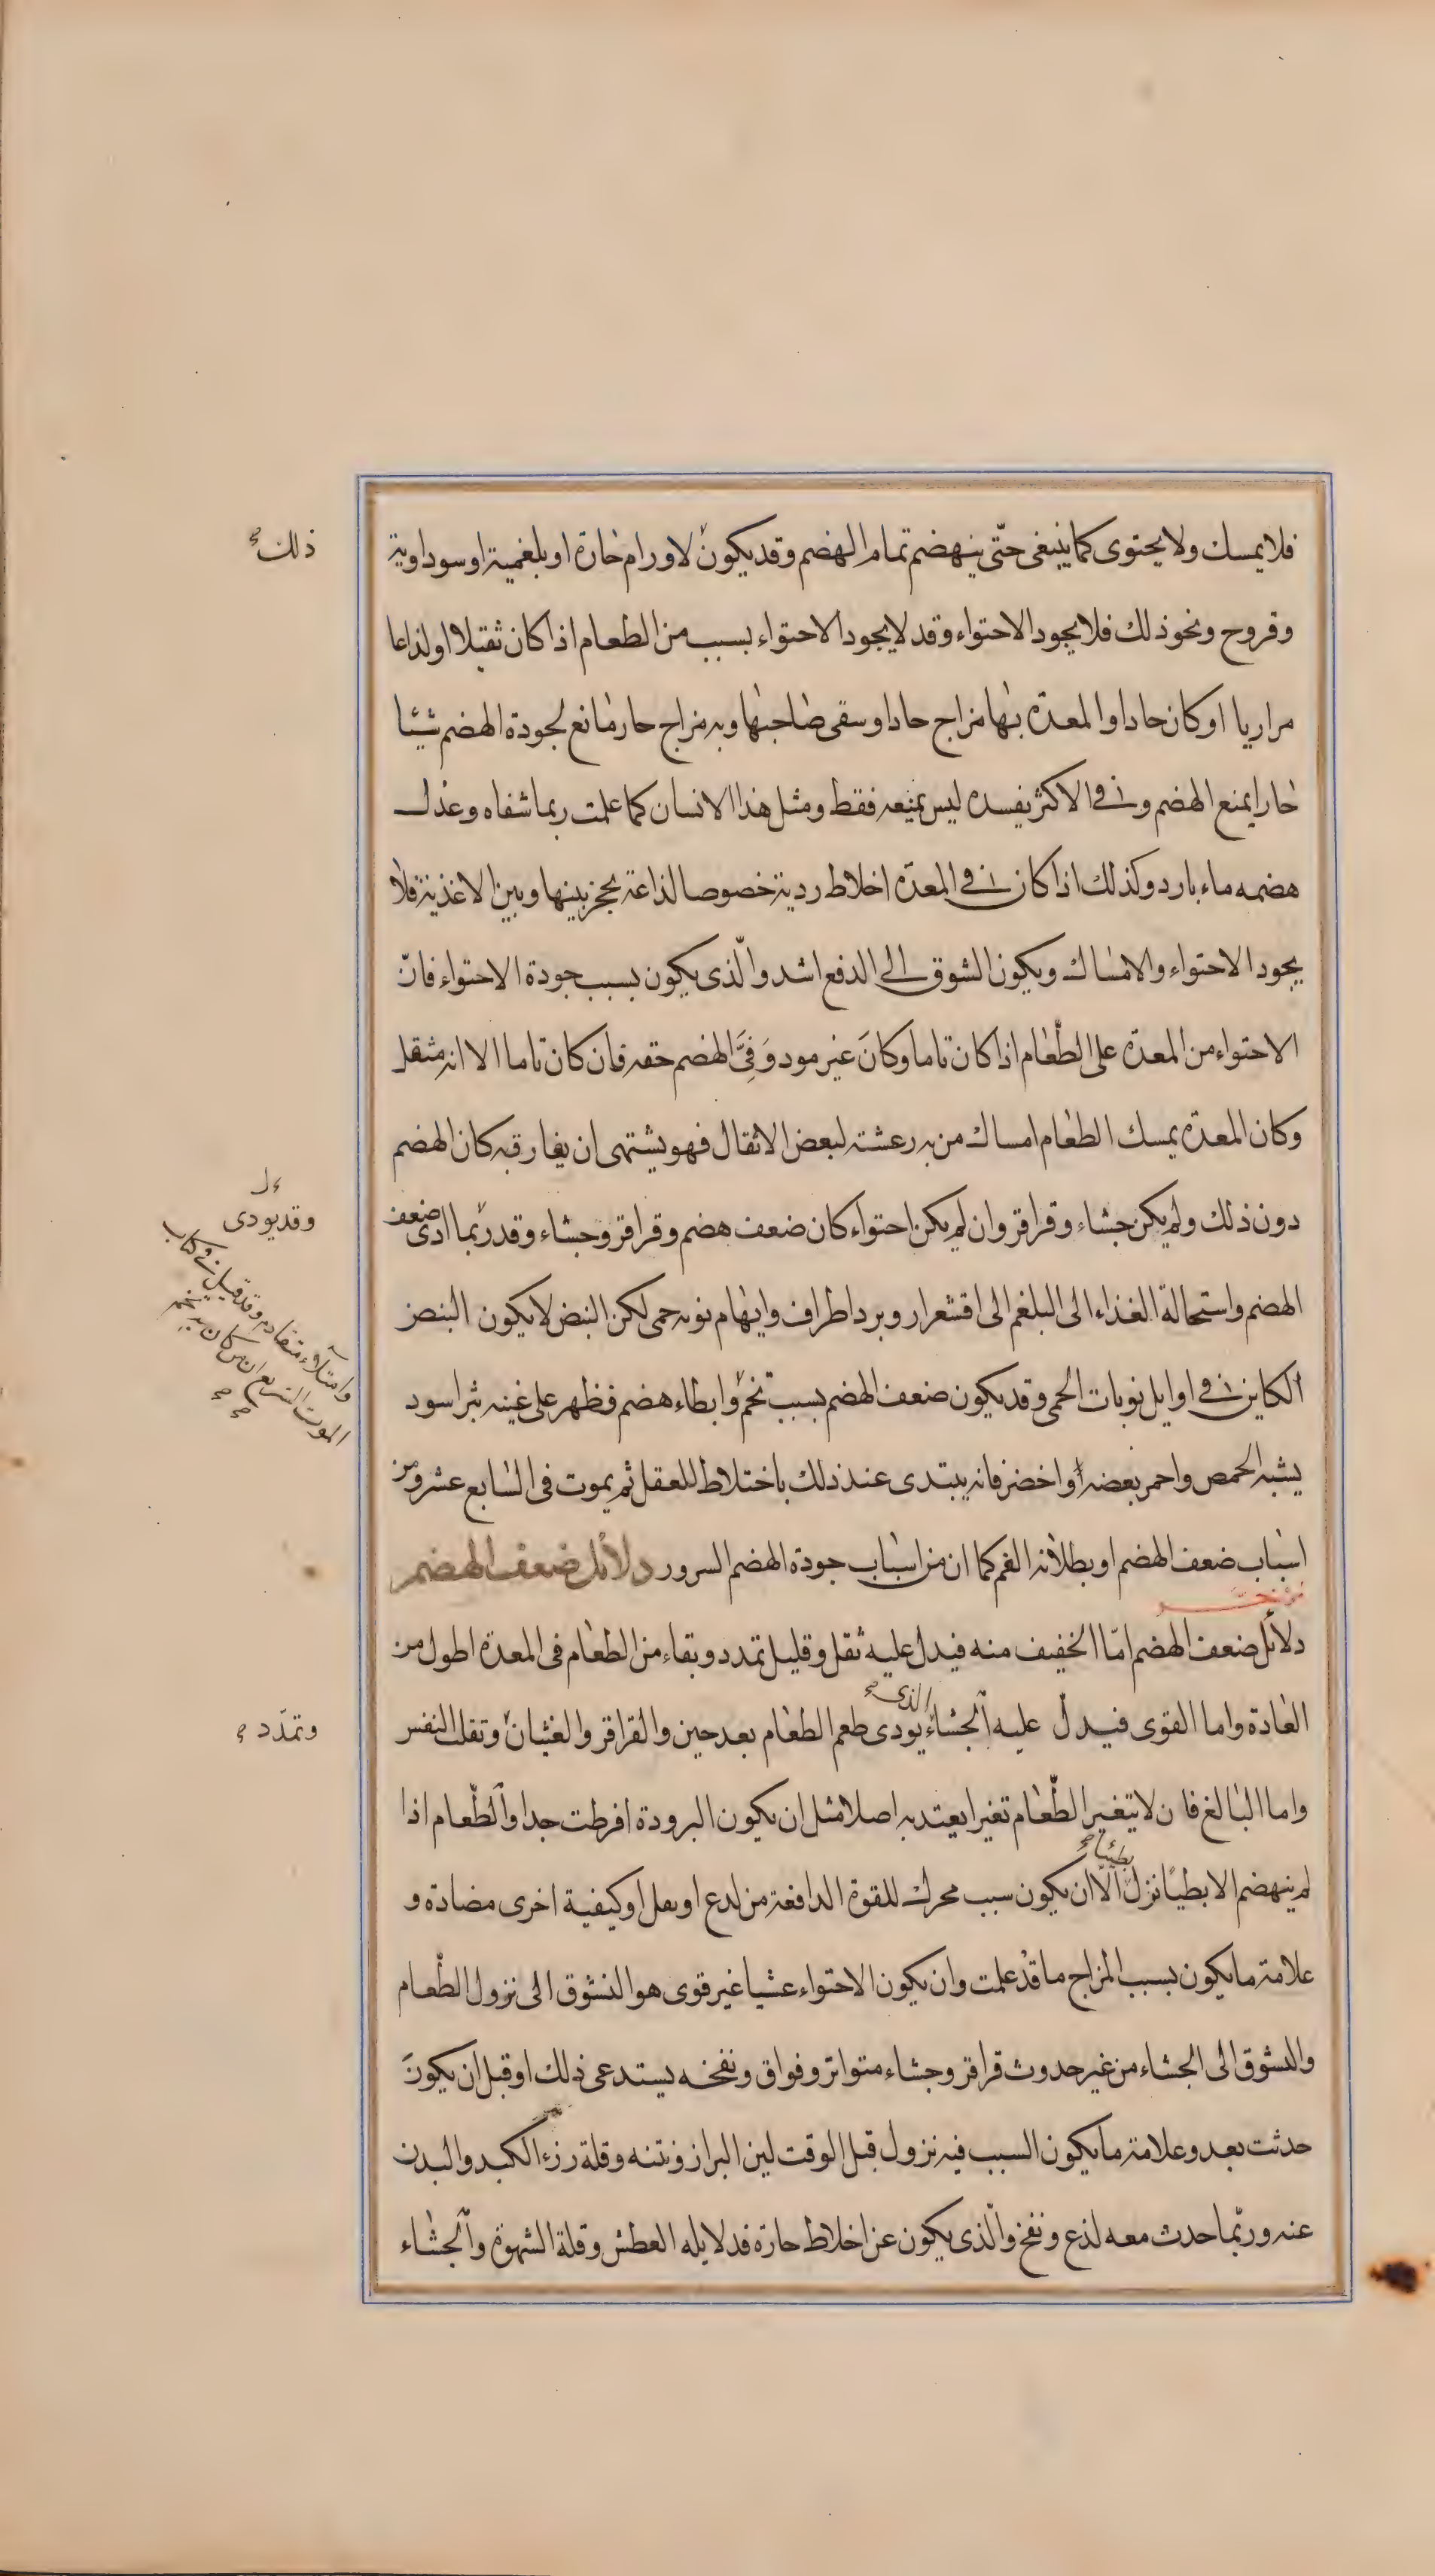 فلا يمسك ولا يحتوى كما ينبغى حتّى ينهضم تمام الهضم وقد يكون لاورام حارة او بلغمية او سوداوية
ذلك صح
وقروح ونحو ذلك فلا يجود الاحتواء وقد لا يجود الاحتواء بسبب من الطعام اذا كان ثقيلا او لذاعا
مراريا او كان حادا والمعدّه بها مزاج حاد او سقى صاحبها وبه مزاج حار مانع لجودة الهضم شيئا
حارا يمنع الهضم و فى الاكثر يفسده ليس يمنعه فقط ومثل هذا الانسان كما علمت ربما شفاه وعدل
هضمه ماء بارد وكذلك اذا كان فى المعدّه اخلاط ردية خصوصا لذاعة يحجز بينها وبين الاغذية فلا
يجود الاحتواء والامساك ويكون الشوق الى الدفع اشد والّذى يكون بسبب جودة الاحتواء فانّ
الاحتواء من المعدّه على الطّعام اذا كان تاما وكانَ غير مود وَفِىَّ الهضم حقه فان كان تاما الا انه مثقل
وكان المعدّه يمسك الطعام امساك من به رعشته لبعض الاثقال فهو يشتهى ان يفارقه كان الهضم
دون ذلك ولم يكن جشاء وقراقر وان لم يكن احتواء كان ضعف هضم وقراقر وجشاء وقد ربّما ادى ضعف
وقد يودى
الهضم واستحالة الغذاء الى البلغم الى اقشعرار وبرد اطراف وايهام نوبه حمى لكن النبض لا يكون النبض
الكاين فى اوايل نوبات الحمى وقد يكون ضعف الهضم بسبب تخم وابطاء هضم فظهر على غينه بثر اسود
وامتلاء متقادم وقد قيل فى كتاب
الموت السريع ان من كان به تخم
صح صح
يشبه الحمص واحمر بعضه او اخضر فانه يبتدى عند ذلك باختلاط للعقل ثم يموت فى السابع عشر ومن
اسباب ضعف الهضم او بطلانه الغم كما ان من اسباب جودة الهضم السرور دلائل ضعف الهضم
دلائل ضعف الهضم امّا الخفيف منه فيدل عليه ثقل وقليل تمدد وبقاء من الطعام فى المعدة اطول من
العادة واما القوى فيدل عليه الجشاء الذى صح يودى طعم الطعام بعد حين والقراقر والغثيان وتقلب النفس
وتمدّد صح
واما البالغ فان لا يتغير الطّعام تغيرا يعتد به اصلا مثل ان يكون البرودة افرطت جدا والطّعام اذا
لم ينهضم الا بطيئًا نزل بطيئا صح الّا ان يكون سبب محرك للقوة الدافعة من لدع او ثقل او كيفية اخرى مضادة و
علامة ما يكون بسبب المزاج ما قد علمت وان يكون الاحتواء عشيا غير قوى هو التشوق الى نزول الطّعام
والتشوق الى الجشاء من غير حدوث قراقر وجشاء متواتر وفواق ونفخه يستدعى ذلك او قبل ان يكونَ
حدثت بعد وعلامة ما يكون السبب فيه نزول قبل الوقت لين البراز ونتنه وقلة رزء الكبد والبدن
عنه وربّما حدث معه لذع ونفخ والّذى يكون عن اخلاط حارة فدلايله العطش وقلة الشهوة والجشاء